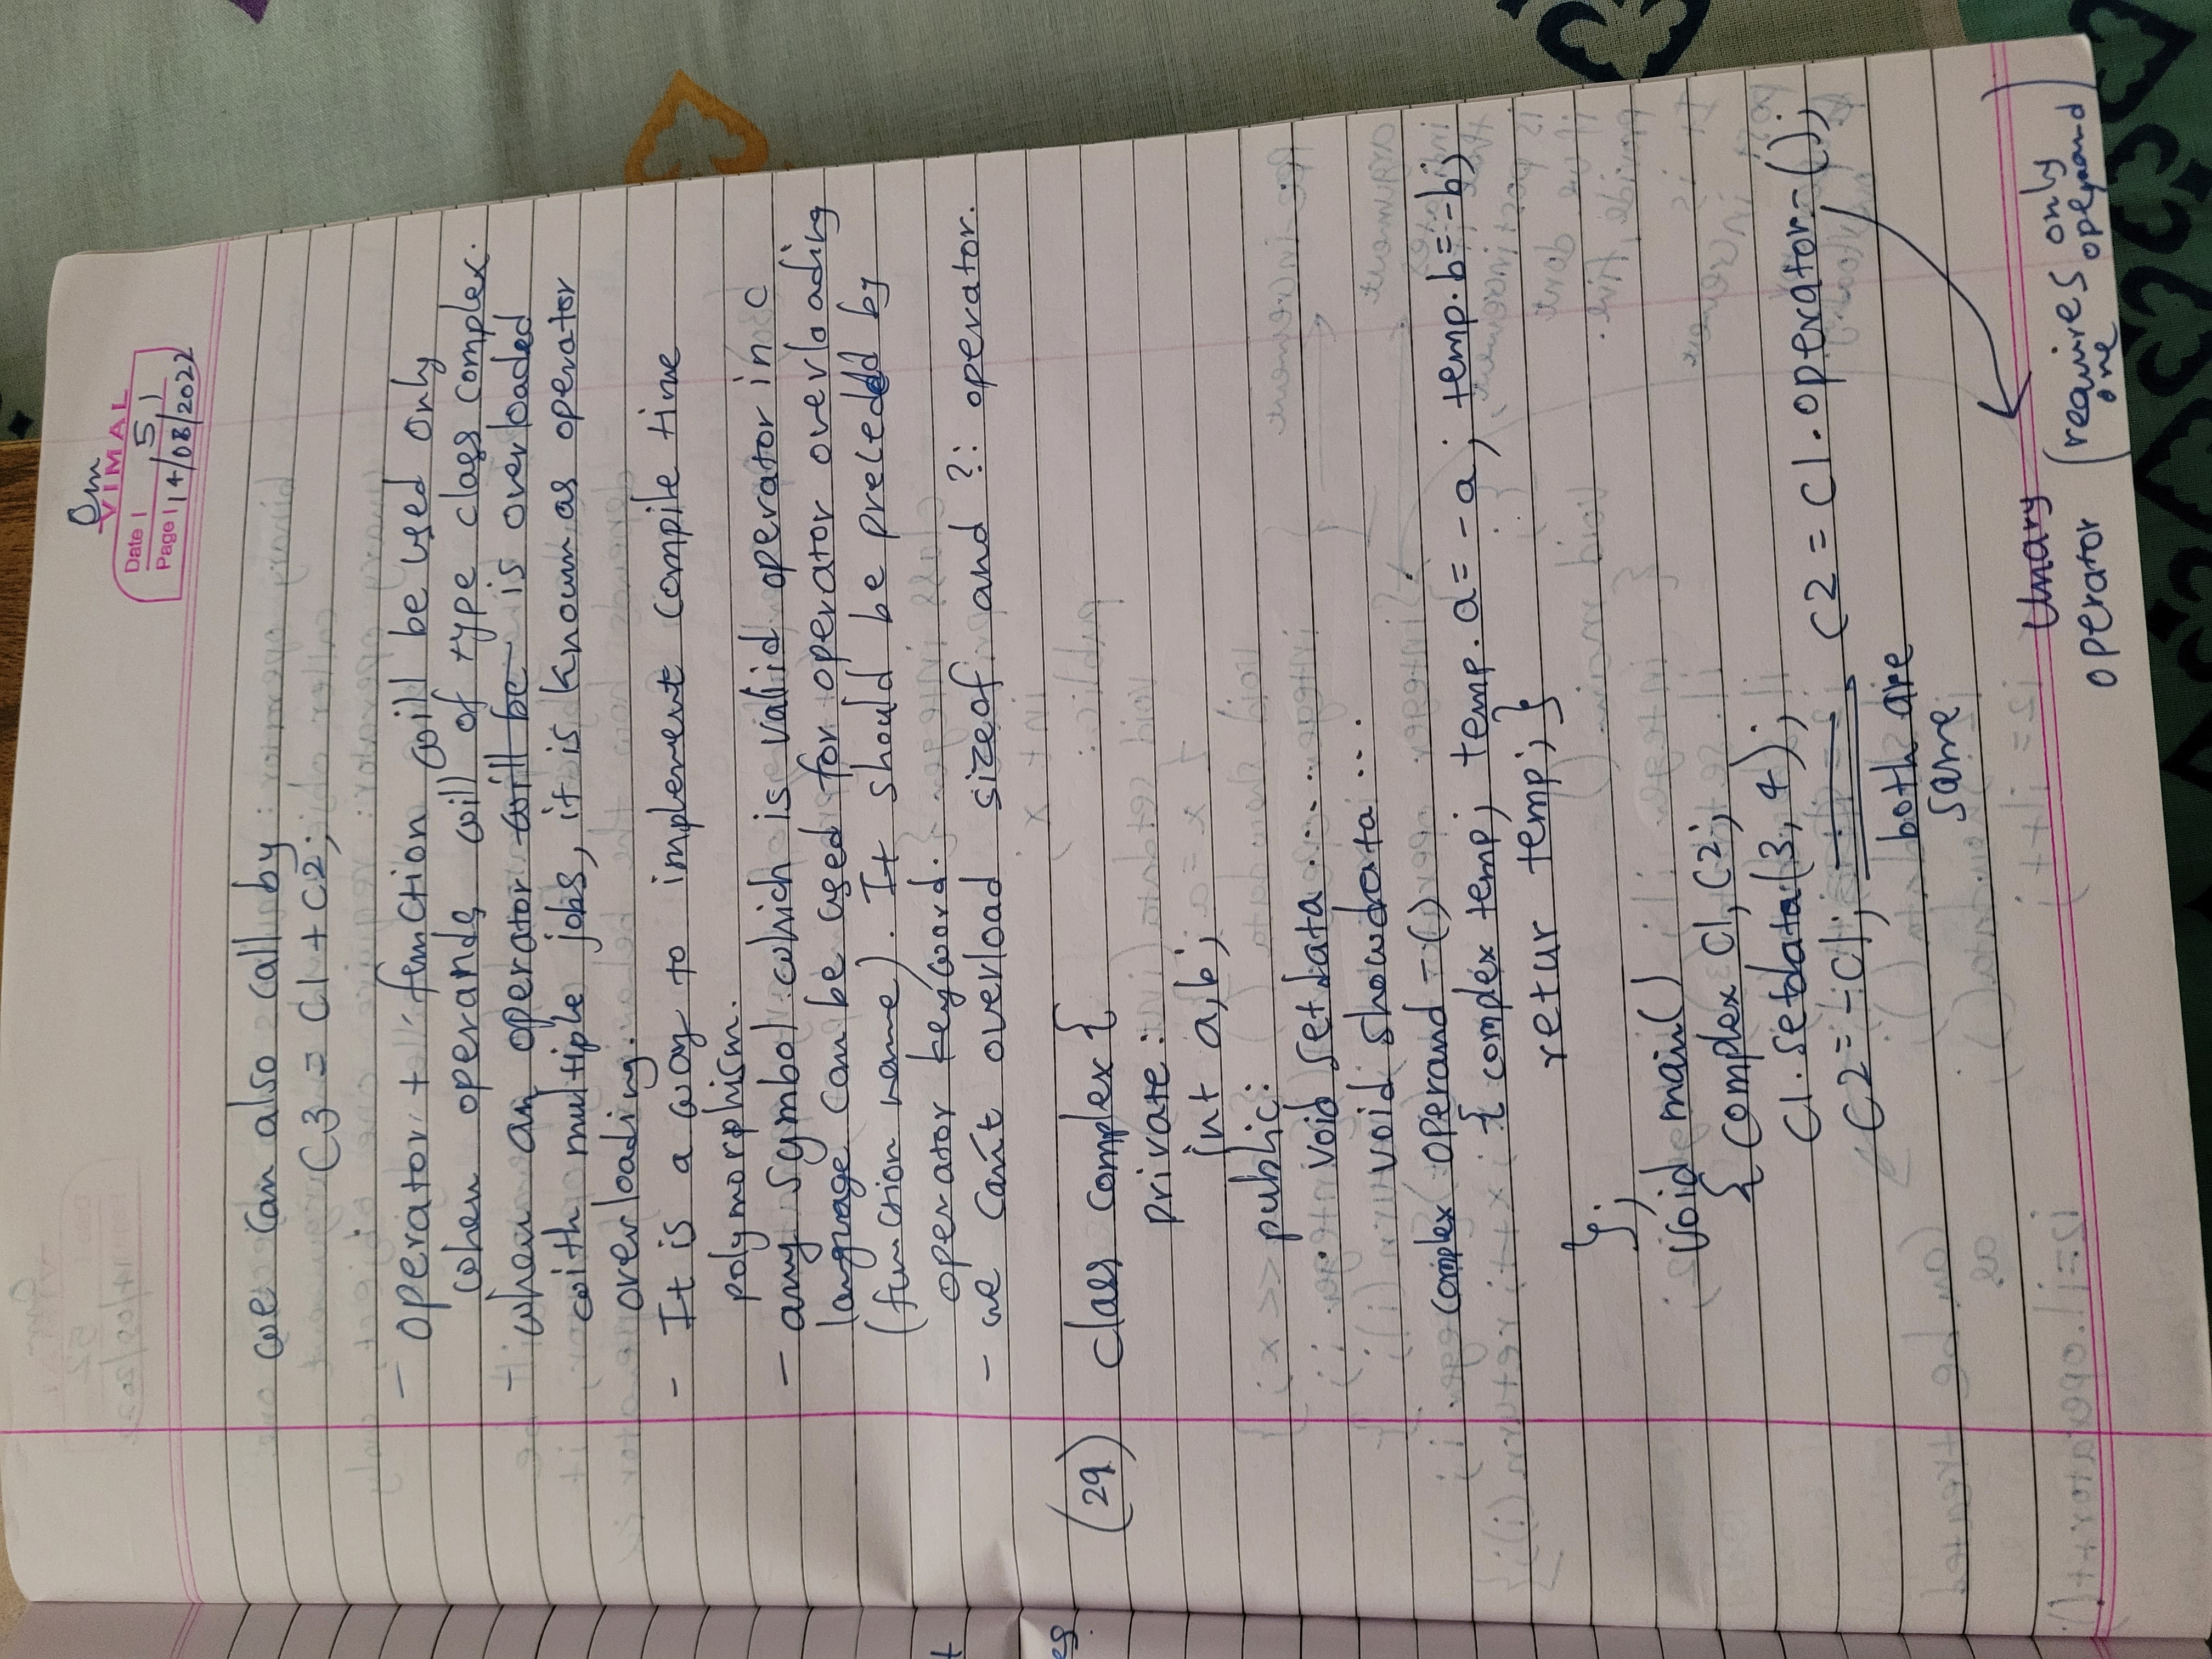 Om
VIMAL
Date 51
Page 14/08/2022
we can also call by
C3 = C1 + C2;
- operator + function will be used only
when operands will of type class complex.
- when an operator will be is overloaded
with multiple jobs, it is known as operator
overloading.
- It is a way to implement compile time
polymorphism.
- any symbol which is valid operator in c
language can be used for operator overloading
(function name). It should be preceded by
operator keyword.
- we can't overload sizeof and ?: operator.
(29) class complex {
private:
int a,b;
public:
void setdata .....
void showdata ...
complex operand -()
{ complex temp; temp.a = -a; temp.b = -b;
retur temp; }
};
void main()
{ complex C1, C2;
C1.setdata(3, 4);
C2 = -C1; C2 = C1.operator-();
both are
same
Unary
operator (requires only
one operand)